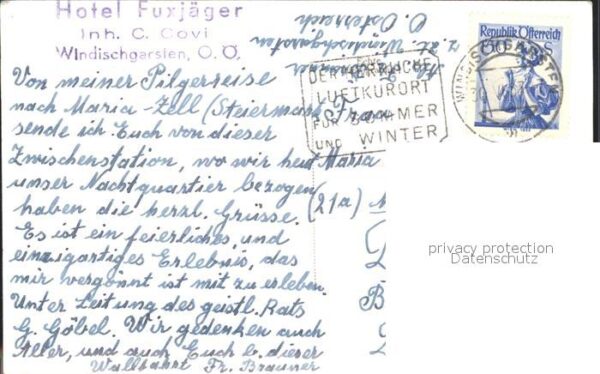 Hotel Fuxjäger
Inh. C. Covi
Windischgarsten, O. Ö.
Von meiner Pilgerreise
nach Maria-Zell (Steiermark)
sende ich Euch von dieser
Zwischenstation, wo wir heut
unser Nachtquartier bezogen
haben die herzl. Grüsse.
Es ist ein feierliches, und
einzigartiges Erlebnis, das
mir vergönnt ist mit zu erleben.
Unter Leitung des geistl. Rats
G. Göbel. Wir gedenken auch
Aller, und auch Euch b. dieser
Wallfahrt Fr. Brauner
z. Zt. Windischgarsten
O. Österreich
DER HERRLICHE
LUFTKURORT
FÜR SOMMER
UND WINTER
Republik Österreich
WINDISCHGARSTEN
Frau
Maria
(21a)
privacy protection
Datenschutz